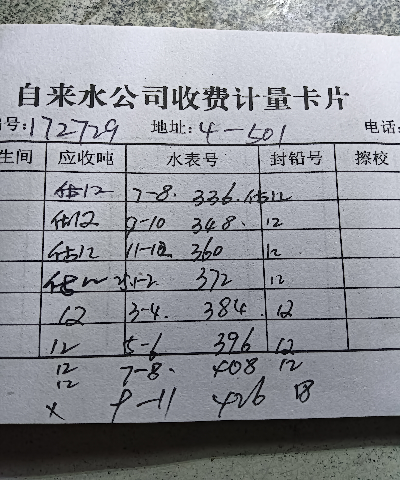 自来水公司收费计量卡片
号:172729 地址:4-501 电话:
生间 应收吨 水表号 封铅号 擦校
估12 7-8. 336. 估12
估12 9-10 348. 12
估12 11-12 360 12
估12 25.1-2 372 12
12 3-4. 384. 12
12 5-6 396 12
12 7-8. 408 12
12
x 9-11 426